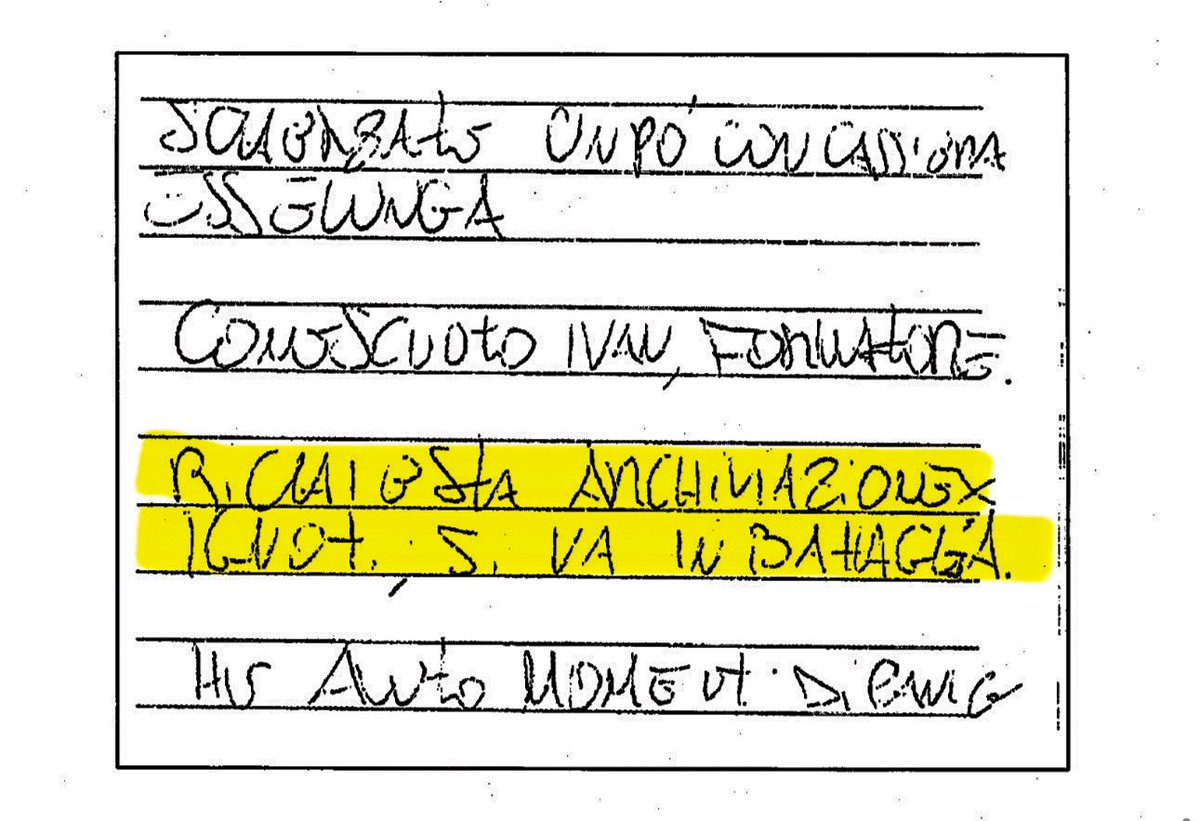 SCHERZATO UN PÒ CON CASSIERA
ESSELUNGA
CONOSCIUTO IVAN, FORMATORE.
RICHIESTA ARCHIVIAZIONE X
IGNOTI, SI VA IN BATTAGGIA.
HO AVUTO MOMENTI DI PANIC